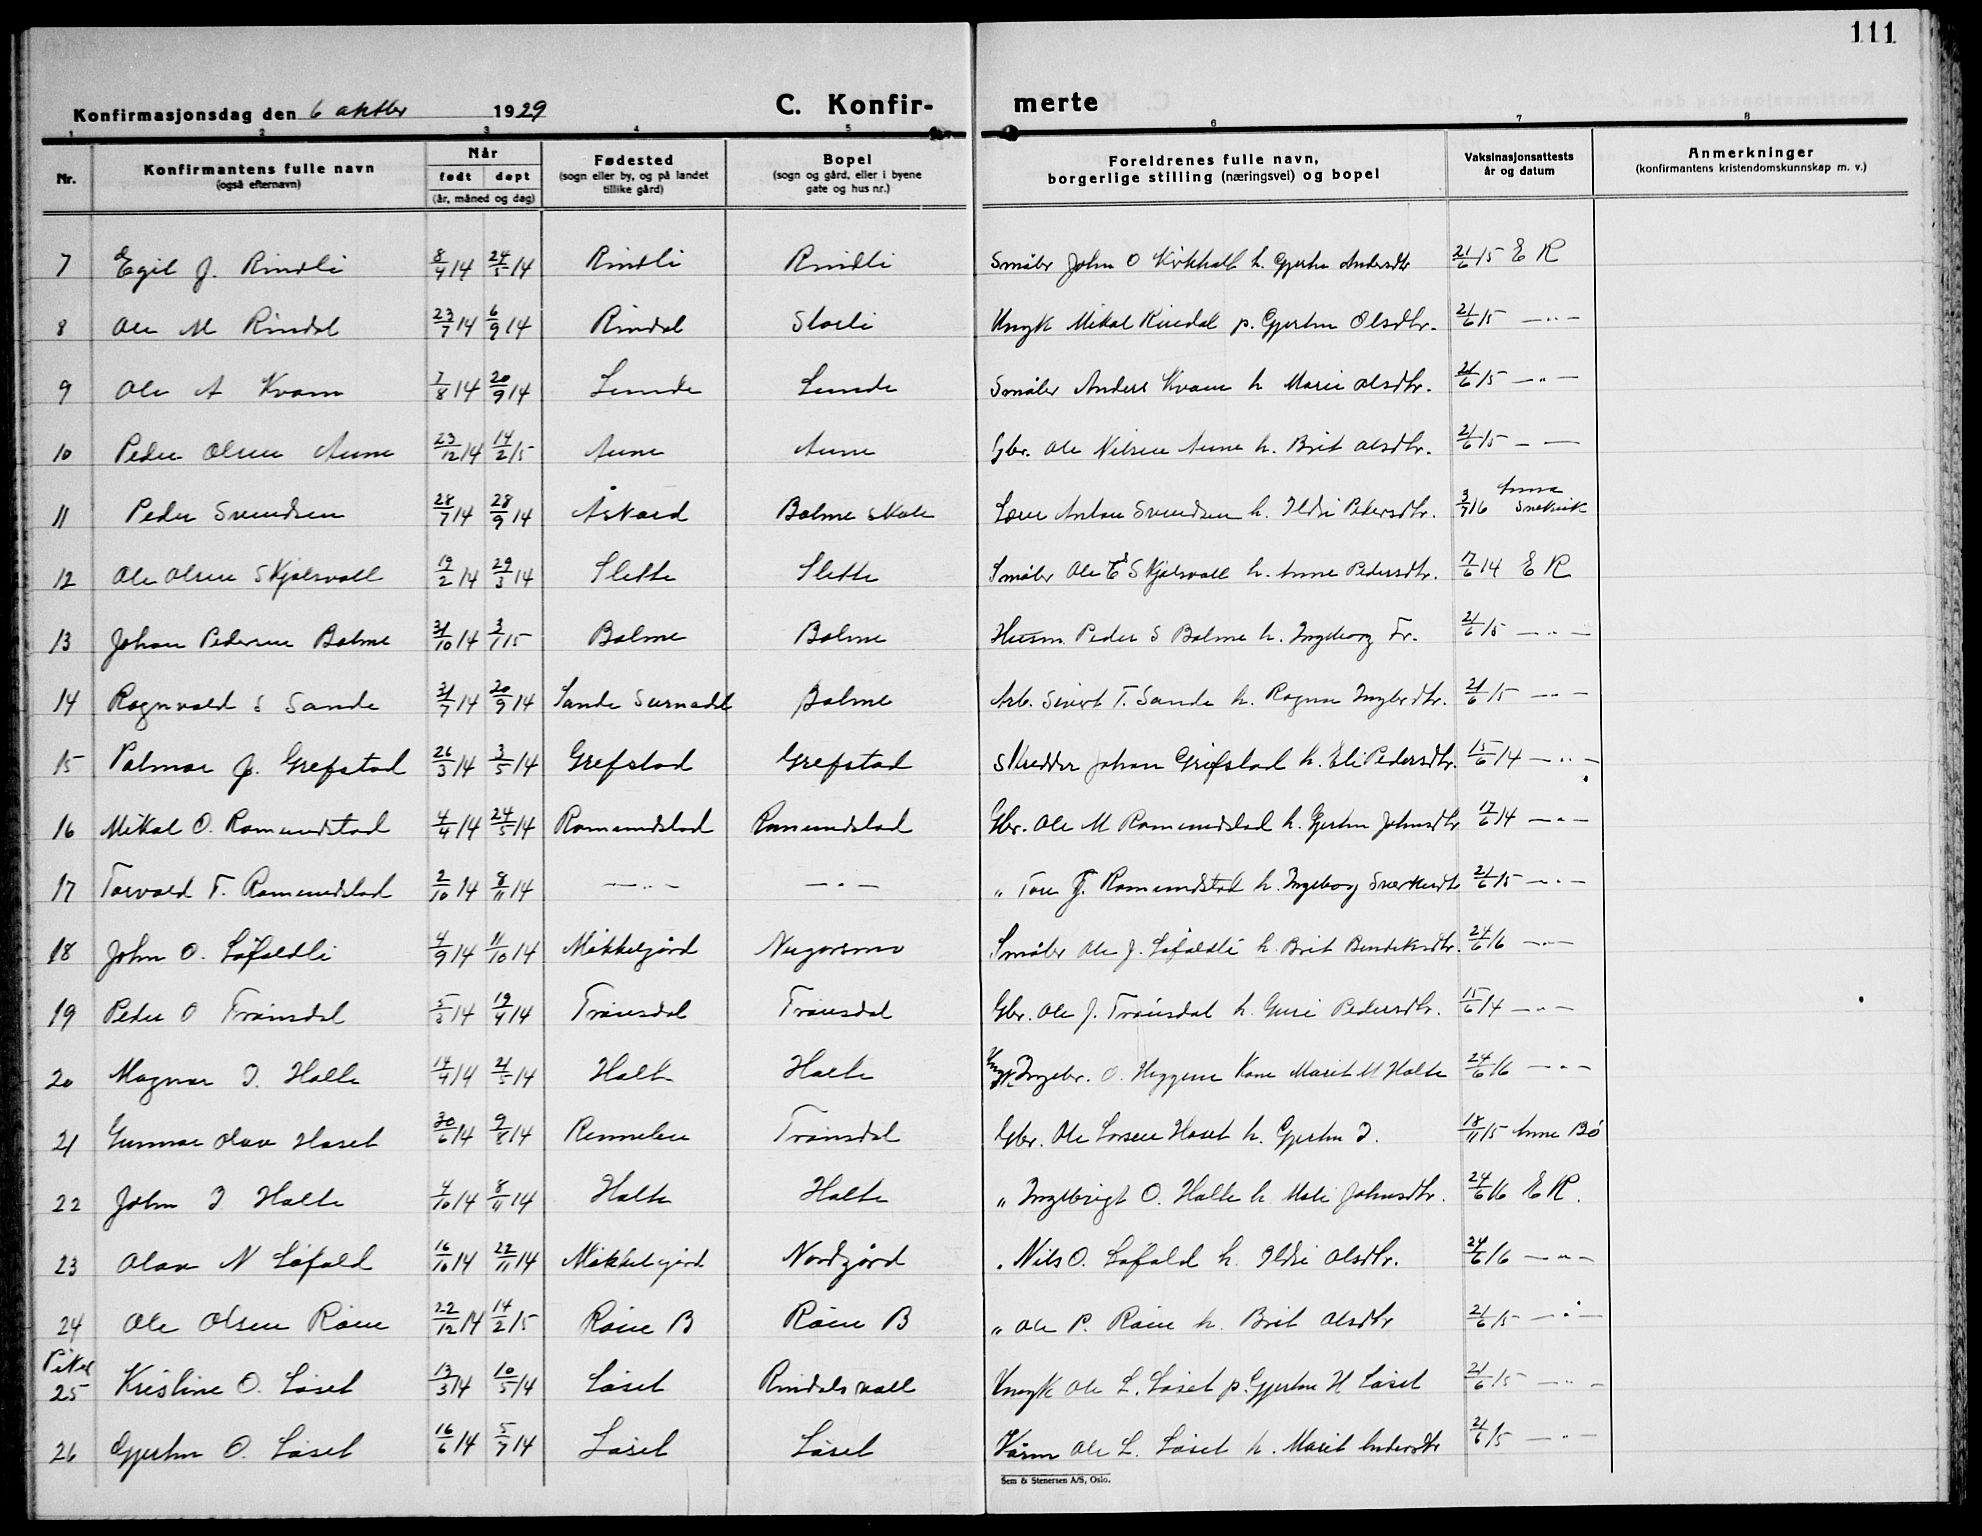 111
Konfirmasjonsdag den 6 oktbr 1929 C. Konfir- merte
1 2 3 4 5 6 7 8
Nr. Konfirmantens fulle navn (også efternavn) Når født døpt (år, måned og dag) Fødested (sogn eller by, og på landet tillike gård) Bopel (sogn og gård, eller i byene gate og hus nr.) Foreldrenes fulle navn, borgerlige stilling (næringsvei) og bopel Vaksinasjonsattests år og datum Anmerkninger (konfirmantens kristendomskunnskap m. v.)
7 Egil J. Rindli 8/4 14 24/5 14 Rindli Rindli Småbr John O Kirkholt h. Gjertru Andersdtr 21/6 15 E R
8 Ole M Rindal 23/7 14 6/9 14 Rindal Storli Ungk Mikal Rindal p. Gjertru Olsdtr. 21/6 15 — " —
9 Ole A Kvam 7/8 14 20/9 14 Lunde Lunde Småbr Anders Kvam h Marie Olsdtr. 21/6 15 — " —
10 Peder Olsen Aune 23/12 14 14/2 15 Aune Aune Gbr. Ole Nilsen Aune h. Brit Olsdtr. 21/6 15 — —
11 Peder Svendsen 28/7 14 28/9 14 Åskard Bolme skole Lærer Anton Svendsen h. Ildri Pedersdtr. 3/7 16 Anna Snekvik
12 Ole Olsen Skjølsvoll 19/2 14 29/3 14 Slette Slette Småbr Ole E Skjølsvoll h. Anne Pedersdtr. 17/6 14 E R
13 Johan Pedersen Bolme 31/10 14 3/1 15 Bolme Bolme Husm. Peder S Bolme h. Ingeborg Tr. 21/6 15 — " —
14 Ragnvald S Sande 31/7 14 20/9 14 Sande Surnadal Bolme Arb. Sivert T. Sande h. Ragna Ingbrdtr. 21/6 15 — " —
15 Palmar J. Grefstad 26/3 14 3/5 14 Grefstad Grefstad Skredder Johan Grefstad h. Eli Pedersdtr. 15/6 14 — " —
16 Mikal O. Romundstad 4/4 14 24/5 14 Romundstad Romundstad Gbr. Ole M Romundstad h. Gjertru Johnsdtr 17/6 14 — " —
17 Torvald T. Romundstad 2/10 14 8/11 14 — " — — " — " Tore J. Romundstad h. Ingeborg Sverkesdtr 21/6 15 — " —
18 John O. Løfaldli 4/9 14 11/10 14 Mikkelgård Nygårsmo Småbr Ole J. Løfaldli h. Brit Bendiksdtr. 24/6 16 — " —
19 Peder O Trønsdal 5/3 14 19/4 14 Trønsdal Trønsdal Gbr. Ole J. Trønsdal h. Guri Pedersdtr. 15/6 14 — " —
20 Magnar I. Holte 14/4 14 21/5 14 Holte Holte Ungk. Ingebr. O. Heggem Kone Marit M Holte 24/6 16 — " —
21 Gunnar Olav Haset 30/6 14 9/8 14 Rennebu Trønsdal Gbr. Ole Larsen Haset h. Gjertru I. 18/11 15 Anne Bø
22 John I Holte 4/10 14 8/11 14 Holte Holte " Ingebrigt O. Holte h Mali Johnsdtr. 24/6 16 E R.
23 Olav N Løfald 16/10 14 22/11 14 Mikkelgård Nordgård " Nils O. Løfald h. Ildri Olsdtr. 24/6 16 — " —
24 Ole Olsen Røen 22/12 14 14/2 15 Røen B Røen B " Ole P. Røen h. Brit Olsdtr 21/6 15 — " —
Piker
25 Kristine O. Løset 13/3 14 10/5 14 Løset Rindalsvoll Ungk Ole L. Løset p. Gjertru H Løset 21/6 15 — " —
26 Gjertru O. Løset 16/6 14 5/7 14 Løset Løset Kårm Ole L. Løset h. Marit Andersdtr 21/6 15 — " —
Sem & Stenersen A/S, Oslo.